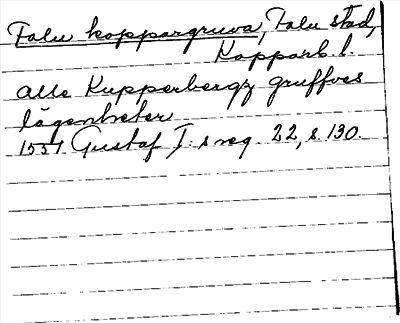 Falu koppargruva, Falu stad,
Kopparb. l.
alle Kupperbergz gruffves
lägenheter
1551 Gustaf I:s reg. 22, s. 130.